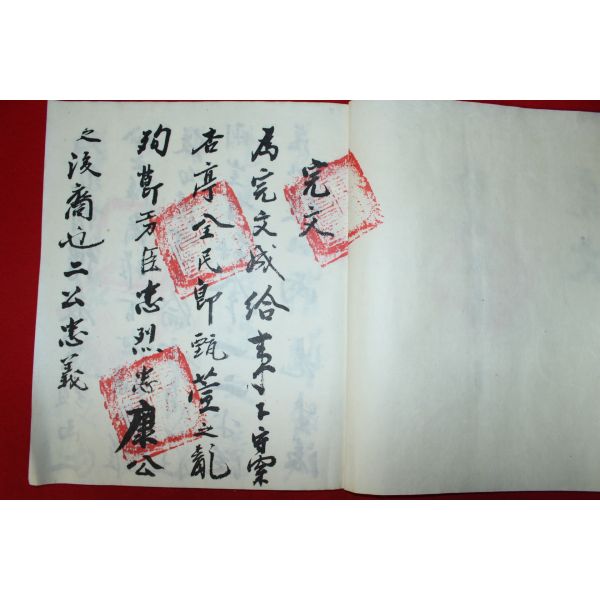 完文
為完文成給事
杏亭全民即甄萱之亂
殉節臣忠烈忠康公
之後裔也二公忠義